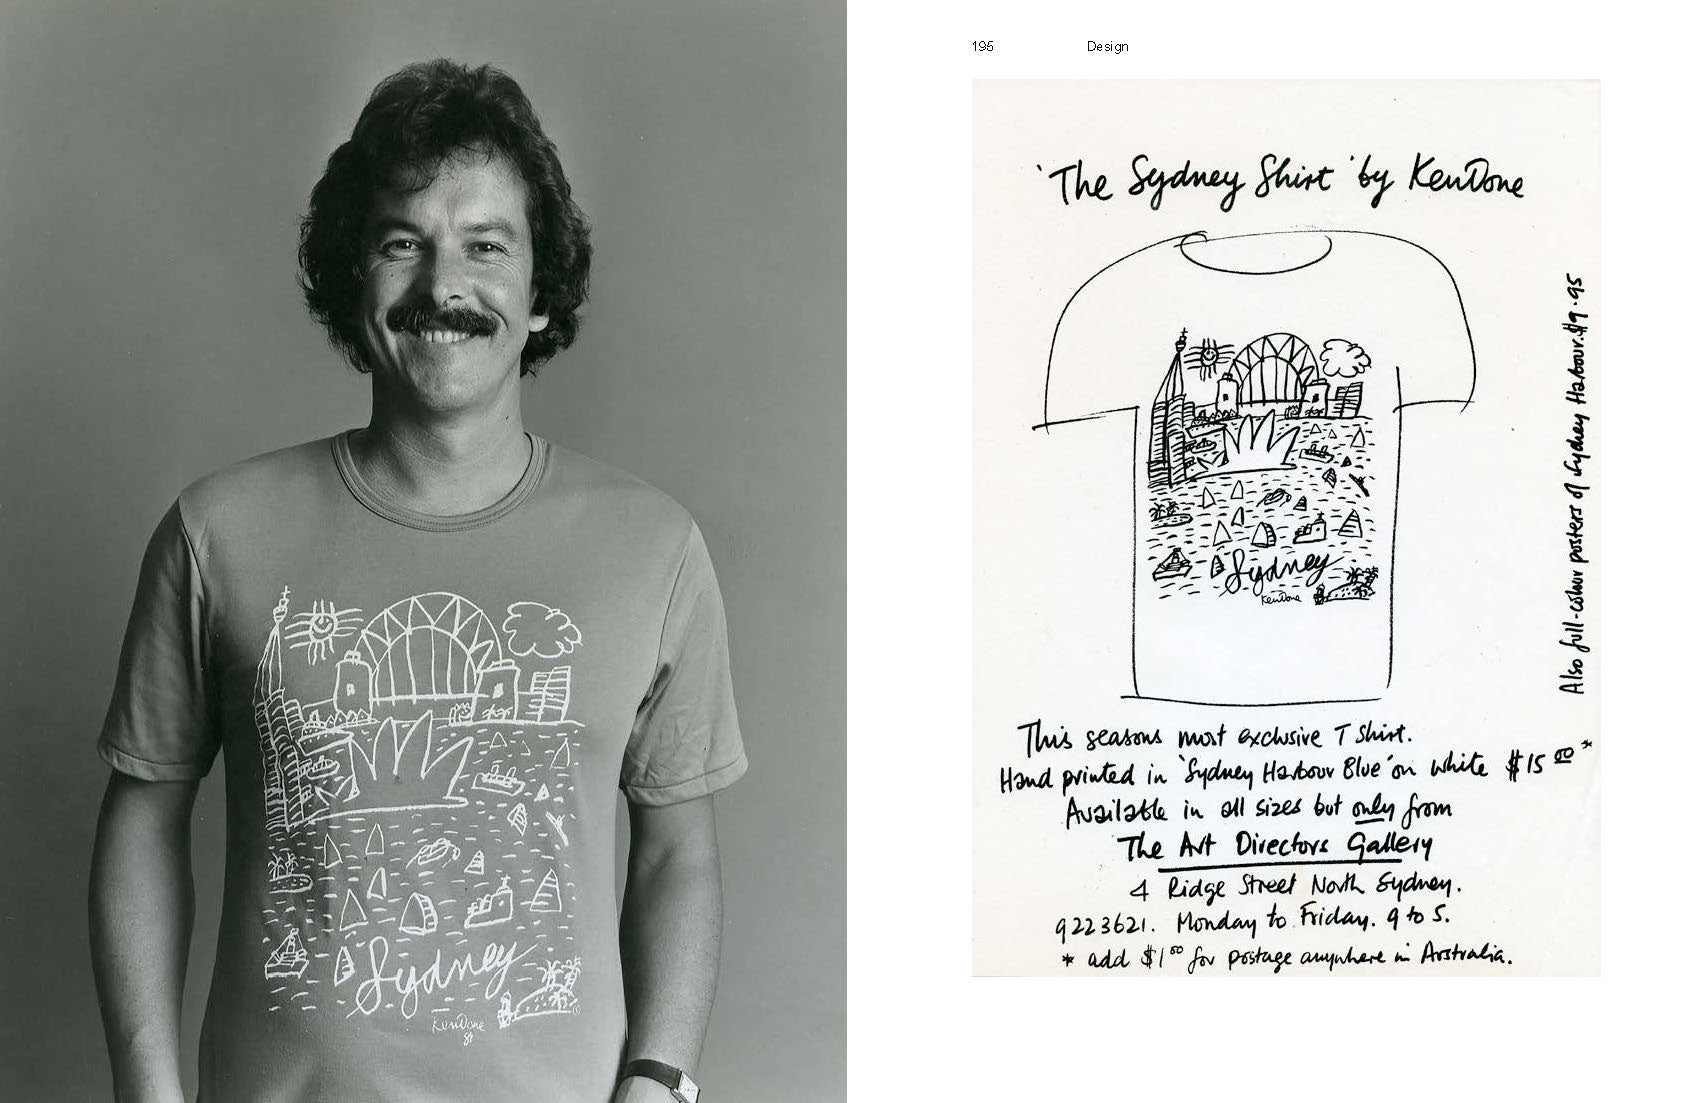 Sydney
Ken Done
81
195 Design
'The Sydney Shirt' by Ken Done
Sydney
Ken Done
Also full-colour posters of Sydney Harbour. $9.95
This seasons most exclusive T Shirt.
Hand printed in 'Sydney Harbour Blue' on white $15.00*
Available in all sizes but only from
The Art Directors Gallery
4 Ridge Street North Sydney.
9223621. Monday to Friday. 9 to 5.
* add $1.00 for postage anywhere in Australia.